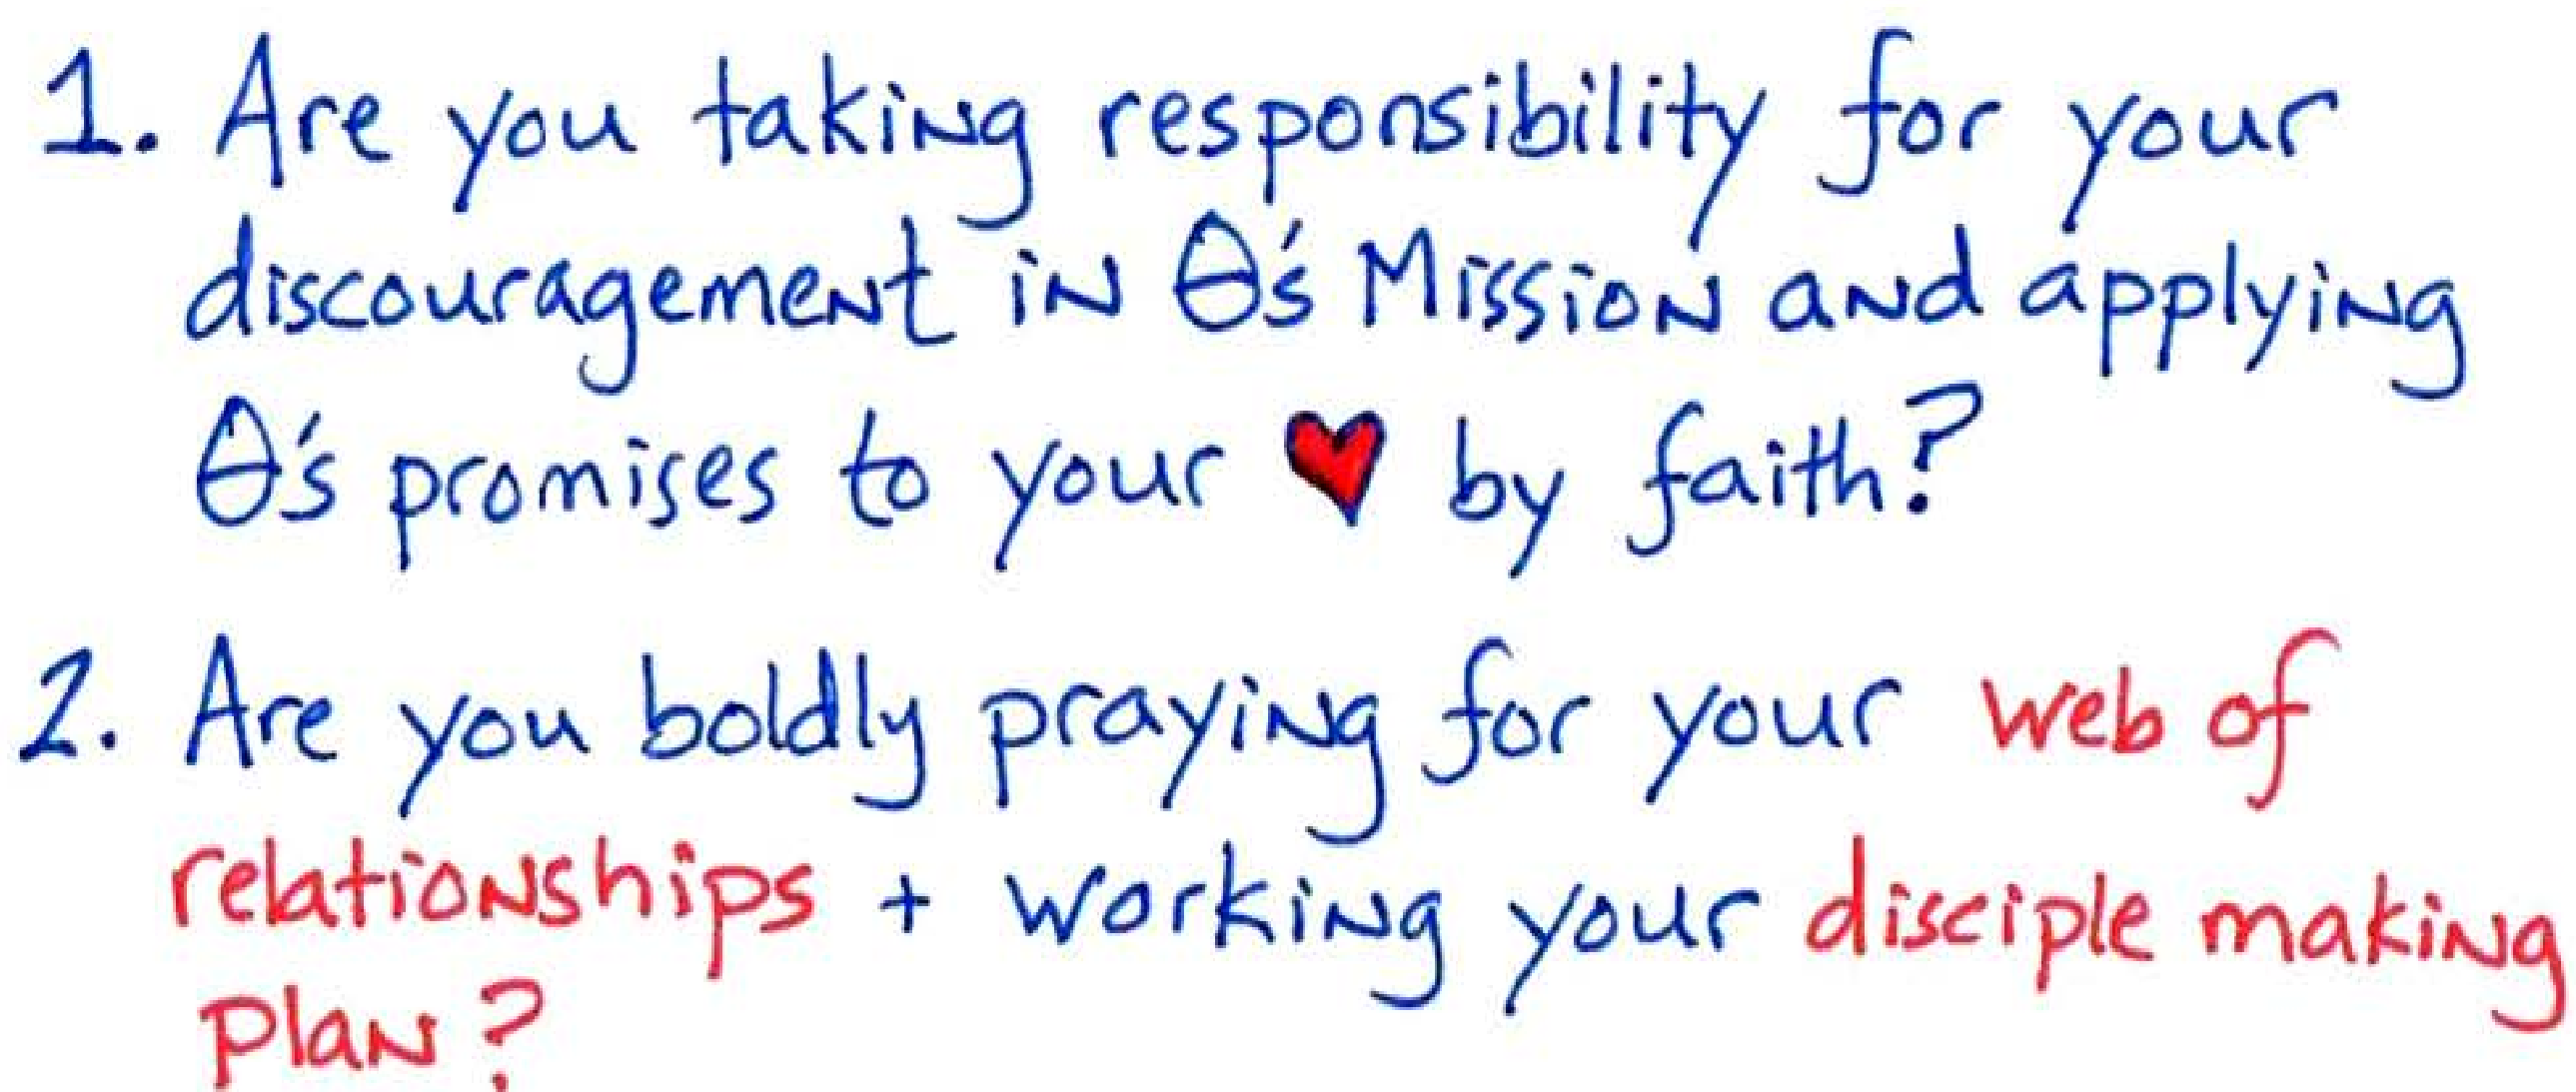 1. Are you taking responsibility for your
discouragement in Θ's Mission and applying
Θ's promises to your ♥ by faith?
2. Are you boldly praying for your web of
relationships + working your disciple making
plan?